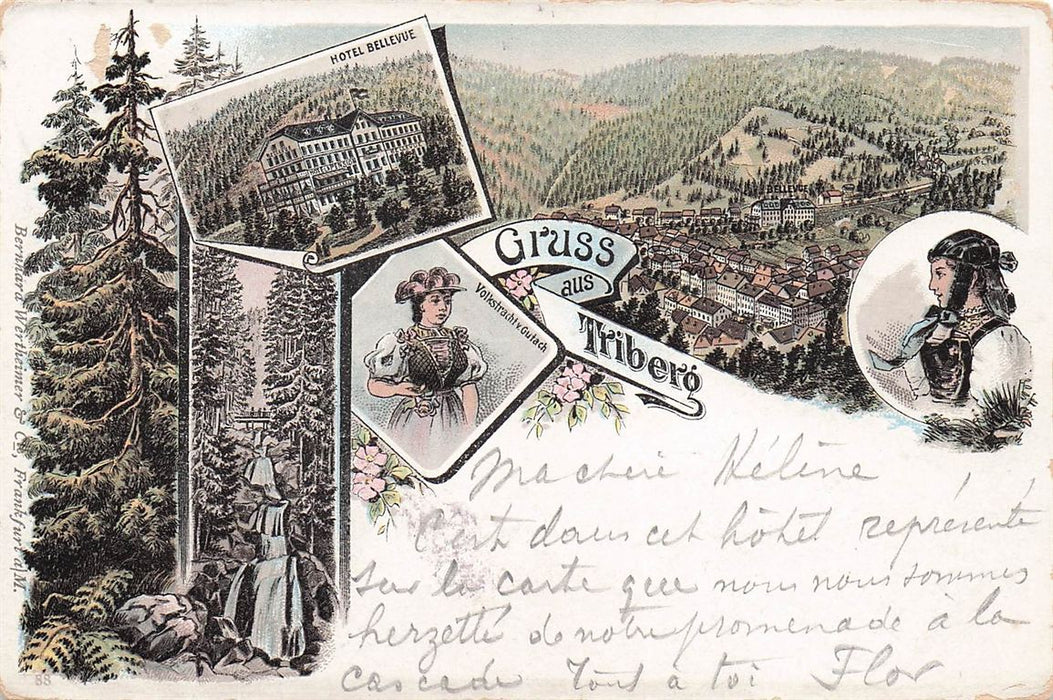 HOTEL BELLEVUE
HOTEL BELLEVUE
BELLEVUE
Gruss
aus
Triberg
Volkstracht v. Gutach
Bernhard Wertheimer & Co., Frankfurt a/M.
Ma chere Hélène
C'est dans cet hôtel représenté
sur la carte que nous nous sommes
de notre promenade à la
cascade Tout à toi Flor
88